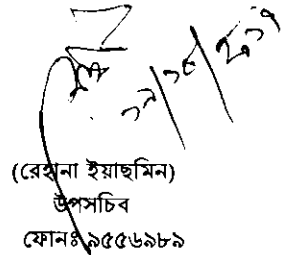 (রেহানা ইয়াছমিন)
উপসচিব
ফোনঃ ৯৫৫৬৯৮৯